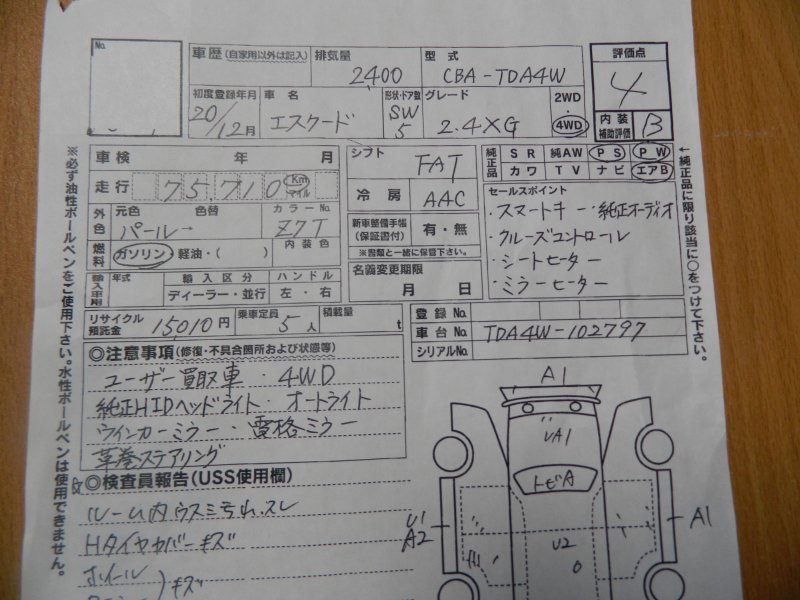 No.
車歴 (自家用以外は記入)
排気量 2400
型式 CBA-TDA4W
評価点 4
初度登録年月 20/12月
車名 エスクード
形状・ドア数 SW 5
グレード 2.4XG
2WD・4WD
内装補助評価 B
車検 年 月
シフト FAT
純正品 SR 純AW PS PW
カワ TV ナビ エアB
走行 75,710 Km マイル
冷房 AAC
セールスポイント
・スマートキー・純正オーディオ
・クルーズコントロール
・シートヒーター
・ミラーヒーター
外色 元色 パール→ 色替 カラーNo. Z7T
新車整備手帳(保証書付) 有・無
※書類と一緒に保管下さい。
燃料 ガソリン・軽油・( ) 内装色
名義変更期限 月 日
輸入車用 年式 輸入区分 ハンドル
ディーラー・並行 左・右
リサイクル預託金 15010円 乗車定員 5人 積載量 t
登録No.
車台No. TDA4W-102797
シリアルNo.
◎注意事項(修復・不具合箇所および状態等)
ユーザー買取車・4WD
純正HIDヘッドライト・オートライト
ウインカーミラー・電格ミラー
革巻ステアリング
◎検査員報告(USS使用欄)
ルーム内ウスミ汚れ.スレ
Hタイヤカバーキズ
ホイール
キズ
A1
UA1
トビA
U1
A2
A1
U2
※必ず油性ボールペンをご使用下さい。水性ボールペンは使用できません。
←純正品に限り該当に○をつけて下さい。